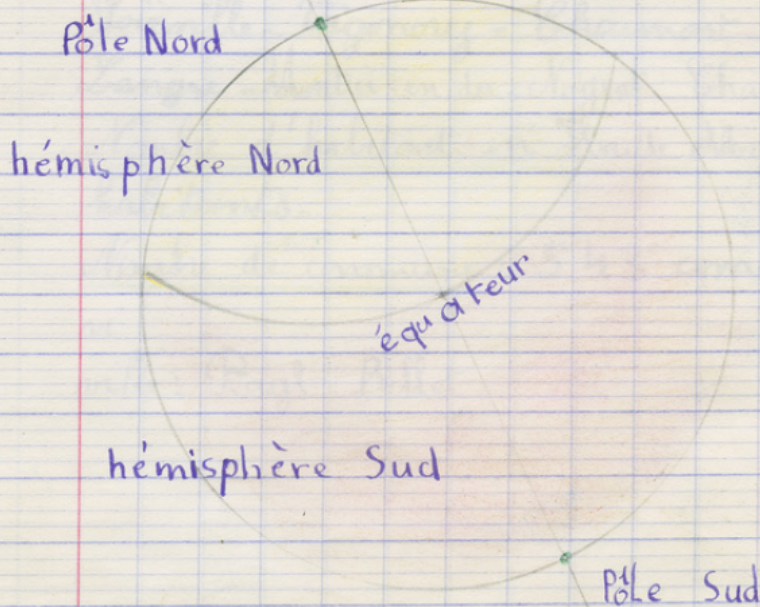 Pôle Nord
hémisphère Nord
équateur
hémisphère Sud
Pôle Sud